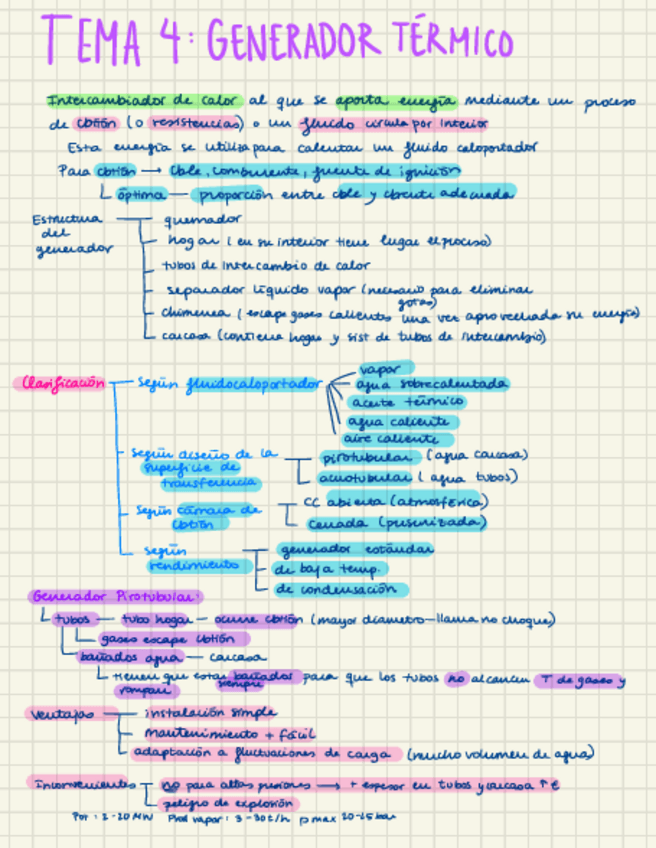 TEMA 4: GENERADOR TÉRMICO
Intercambiador de calor al que se aporta energía mediante un proceso
de cbtión (o resistencias) o un fluido circula por interior
Esta energía se utiliza para calentar un fluido caloportador
Para cbtión → cble, comburente, fuente de ignición
óptima — proporción entre cble y cbrente adecuada
Estructura del generador
quemador
hogar (en su interior tiene lugar el proceso)
tubos de intercambio de calor
separador líquido vapor (necesario para eliminar gotas)
chimenea (escape gases calientes una vez aprovechada su energía)
carcasa (contiene hogar y sist de tubos de intercambio)
Clasificación
según fluido caloportador
vapor
agua sobrecalentada
aceite térmico
agua caliente
aire caliente
según diseño de la
superficie de
transferencia
pirotubular (agua carcasa)
acuotubular (agua tubos)
según cámara de
cbtión
CC abierta (atmosférica)
cerrada (presurizada)
según
rendimiento
generador estándar
de baja temp.
de condensación
Generador Pirotubular:
tubos — tubo hogar — ocurre cbtión (mayor diámetro – llama no choque)
gases escape cbtión
bañados agua — carcasa
tienen que estar siempre bañados para que los tubos no alcancen T de gases y
rompan
Ventajas
instalación simple
mantenimiento + fácil
adaptación a fluctuaciones de carga (mucho volumen de agua)
Inconvenientes
no para altas presiones → + espesor en tubos y carcasa ↑€
peligro de explosión
Pot: 2-20 MW Prod vapor: 3-30 t/h p max 20-25 bar